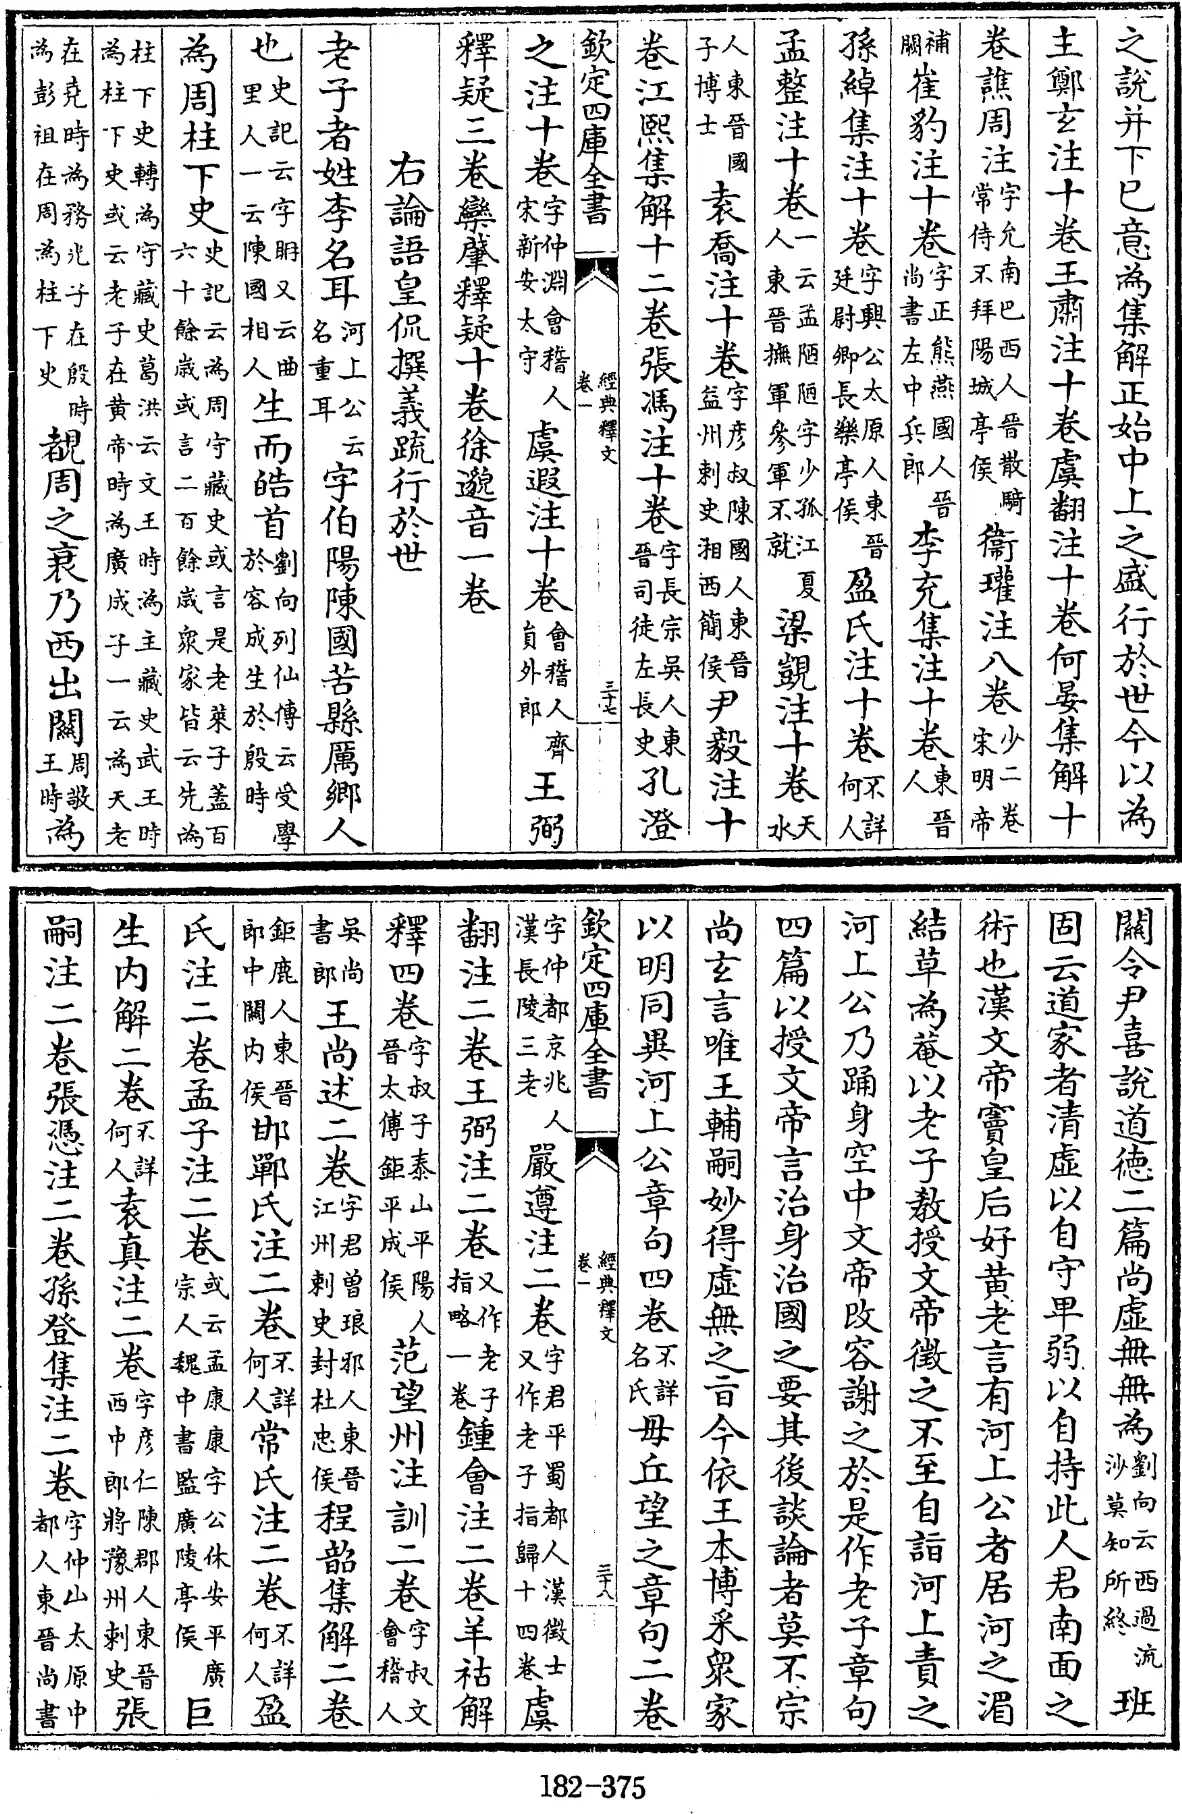 之說并下己意為集解正始中上之盛行於世今以為
主鄭玄注十卷王肅注十卷虞翻注十卷何晏集解十
卷譙周注字允南巴西人晉散騎常侍不拜陽城亭侯衞瓘注八卷少二卷宋明帝
補闕崔豹注十卷字正熊燕國人晉尚書左中兵郎李充集注十卷東晉人
孫綽集注十卷字興公太原人東晉廷尉卿長樂亭侯盈氏注十卷不詳何人
孟整注十卷一云孟陋陋字少孤江夏人東晉撫軍參軍不就梁覬注十卷天水
人東晉國子博士袁喬注十卷字彥叔陳國人東晉益州刺史湘西簡侯尹毅注十
卷江熙集解十二卷張馮注十卷字長宗吳人東晉司徒左長史孔澄
欽定四庫全書 經典釋文 卷一 三十七
之注十卷字仲淵會稽人宋新安太守虞遐注十卷會稽人齊員外郎王弼
釋疑三卷欒肇釋疑十卷徐邈音一卷
右論語皇侃撰義疏行於世
老子者姓李名耳河上公云名重耳字伯陽陳國苦縣厲鄉人
也史記云字耼又云曲里人一云陳國相人生而皓首劉向列仙傳云受學於容成生於殷時
為周柱下史史記云為周守藏史或言是老萊子蓋百六十餘歲或言二百餘歲衆家皆云先為
柱下史轉為守藏史葛洪云文王時為主藏史武王時為柱下史或云老子在黄帝時為廣成子一云為天老
在堯時為務兆子在殷時為彭祖在周為柱下史覩周之衰乃西出關周敬王時為
關令尹喜說道德二篇尚虛無無為劉向云西過流沙莫知所終班
固云道家者清虛以自守卑弱以自持此人君南面之
術也漢文帝竇皇后好黄老言有河上公者居河之湄
結草為菴以老子教授文帝徵之不至自詣河上責之
河上公乃踊身空中文帝改容謝之於是作老子章句
四篇以授文帝言治身治國之要其後談論者莫不宗
尚玄言唯王輔嗣妙得虛無之旨今依王本博采衆家
以明同異河上公章句四卷不詳名氏毋丘望之章句二卷
欽定四庫全書 經典釋文 卷一 三十八
字仲都京兆人漢長陵三老嚴遵注二卷字君平蜀都人漢徵士又作老子指歸十四卷虞
翻注二卷王弼注二卷又作老子指略一卷鍾會注二卷羊祜解
釋四卷字叔子泰山平陽人晉太傅鉅平成侯范望州注訓二卷字叔文會稽人
吳尚書郎王尚述二卷字君曽琅邪人東晉江州刺史封杜忠侯程韶集解二卷
鉅鹿人東晉郎中關内侯邯鄲氏注二卷不詳何人常氏注二卷不詳何人盈
氏注二卷孟子注二卷或云孟康康字公休安平廣宗人魏中書監廣陵亭侯巨
生内解二卷不詳何人袁真注二卷字彥仁陳郡人東晉西中郎將豫州刺史張
嗣注二卷張憑注二卷孫登集注二卷字仲山太原中都人東晉尚書
182-375